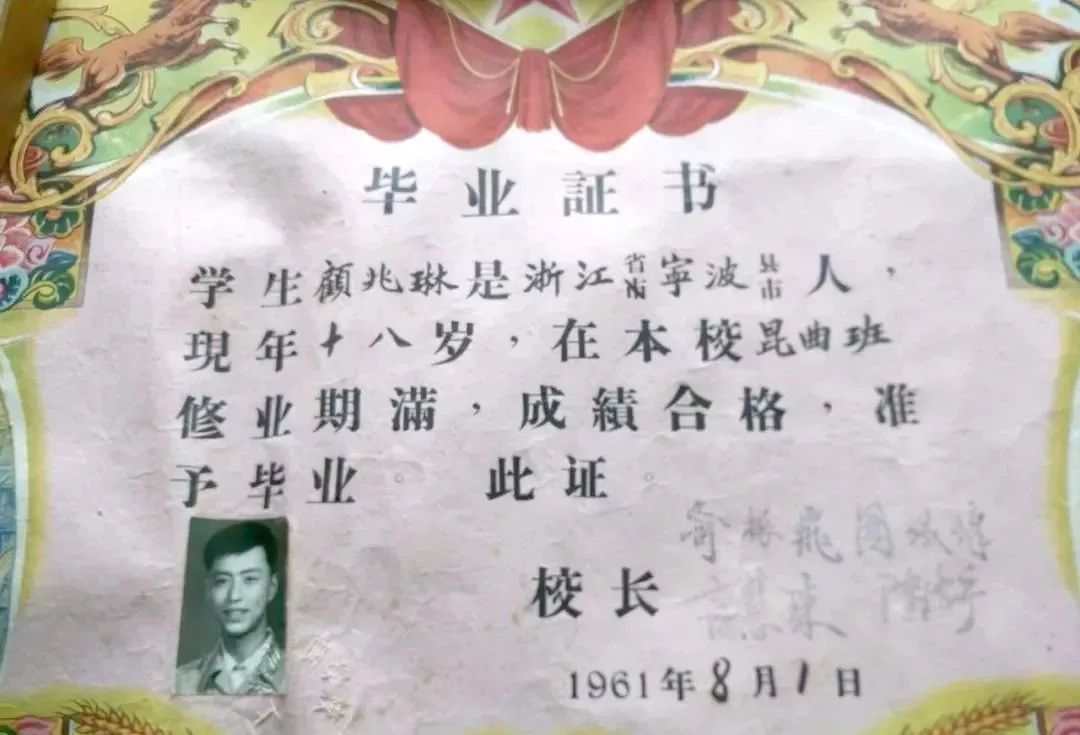 毕业証书
学生顧兆琳是浙江省市寧波县市人，
現年十八岁，在本校昆曲班
修业期滿，成績合格，准
予毕业。此证。
俞振飛周玑璋
校长
言慧珠
1961年8月1日